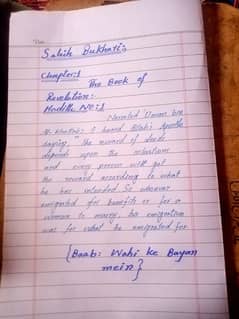 Sahih Bukhari's
Chapter:1
The Book of
Revelation:-
Hadith No:1
Narrated Umar bin
Al-Khattab: I heard Allah's Apostle
saying, "The reward of deeds
depends upon the intentions
and every person will get
the reward according to what
he has intended. So whoever
emigrated for benefits or for a
woman to marry, his emigration
was for what he emigrated for
{Baab: Wahi ke Bayan
mein}